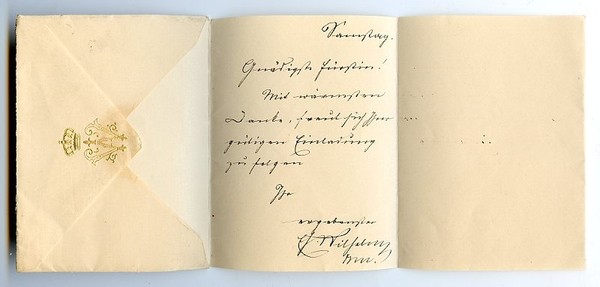 Samstag.
Gnädigste Fürstin!
Mit wärmsten
Danke, freut sich Ihrer
gütigen Einladung
zu folgen
Ihr
ergebenster
Wilhelm